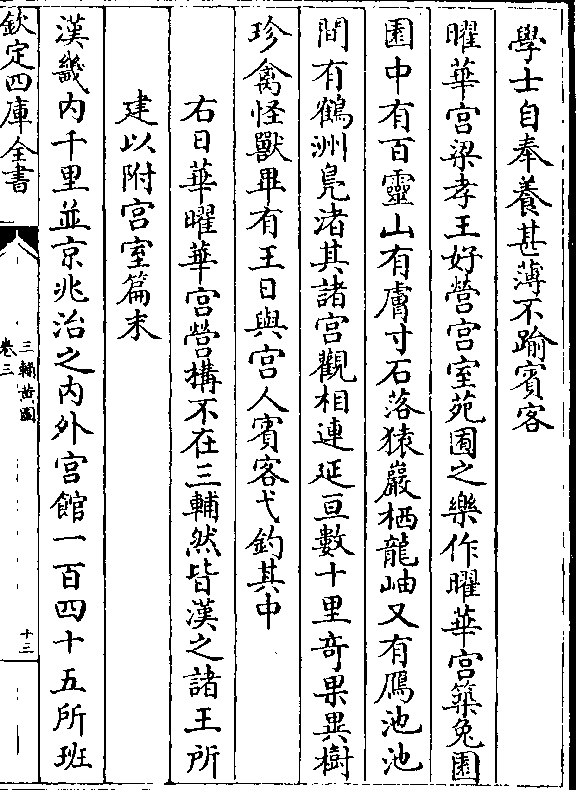 學士自奉養甚薄不踰賓客
曜華宫梁孝王好營宫室苑囿之樂作曜華宫築兔園
園中有百靈山有膚寸石落猿巖栖龍岫又有鴈池池
間有鶴洲鳬渚其諸宫觀相連延亘數十里奇果異樹
珍禽怪獸畢有王日與宫人賓客弋釣其中
右日華曜華宫營構不在三輔然皆漢之諸王所
建以附宫室篇末
漢畿内千里並京兆治之内外宫館一百四十五所班
欽定四庫全書
三輔黄圖
卷三
十三